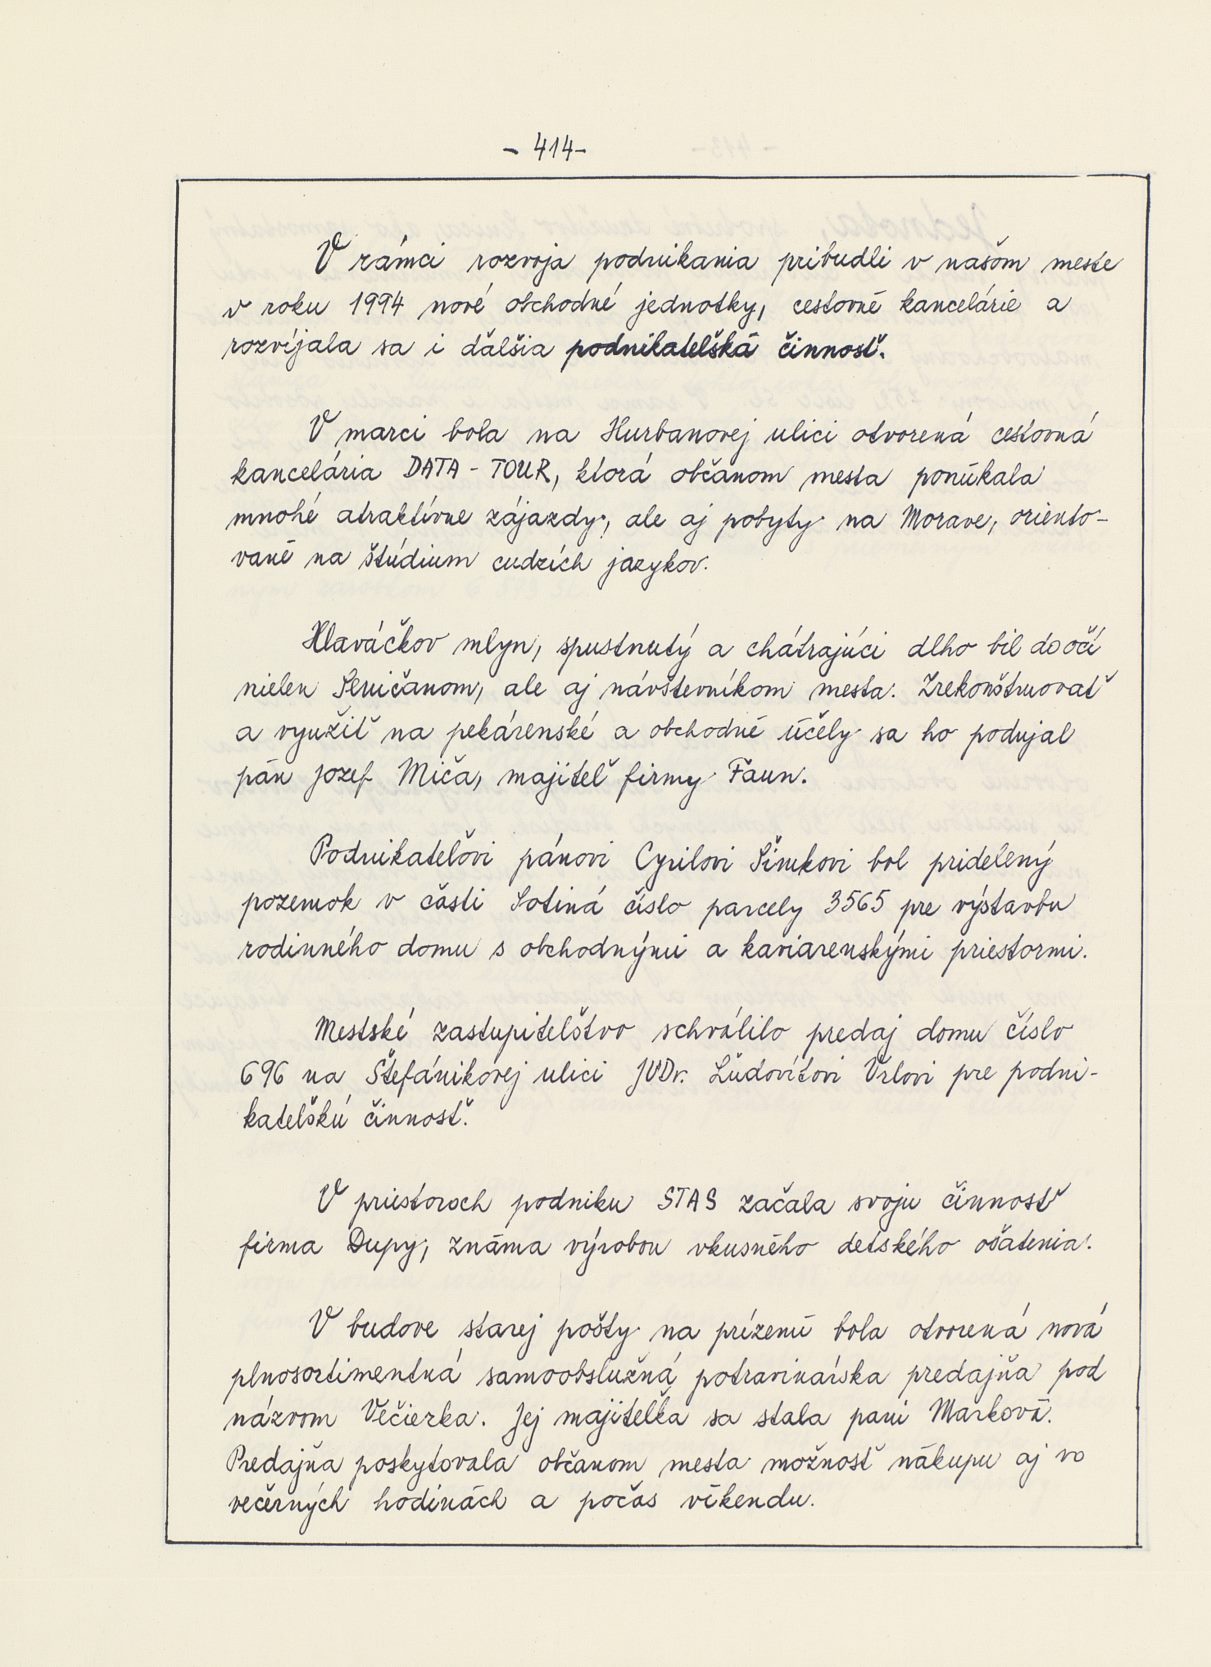 - 414 -
V rámci rozvoja podnikania pribudli v našom meste
v roku 1994 nové obchodné jednotky, cestovné kancelárie a
rozvíjala sa i ďalšia podnikateľská činnosť.
V marci bola na Hurbanovej ulici otvorená cestovná
kancelária DATA - TOUR, ktorá občanom mesta ponúkala
mnohé atraktívne zájazdy, ale aj pobyty na Morave, oriento-
vané na štúdium cudzích jazykov.
Hlaváčkov mlyn, spustnutý a chátrajúci dlho bil do očí
nielen Seničanom, ale aj návštevníkom mesta. Zrekonštruovať
a využiť na pekárenské a obchodné účely sa ho podujal
pán Jozef Miča, majiteľ firmy Faun.
Podnikateľovi pánovi Cyrilovi Šimkovi bol pridelený
pozemok v časti Sotiná číslo parcely 3565 pre výstavbu
rodinného domu s obchodnými a kaviarenskými priestormi.
Mestské zastupiteľstvo schválilo predaj domu číslo
696 na Štefánikovej ulici JUDr. Ľudovítovi Vrlovi pre podni-
kateľskú činnosť.
V priestoroch podniku STAS začala svoju činnosť
firma Dupy, známa výrobou vkusného detského ošatenia.
V budove starej pošty na prízemí bola otvorená nová
plnosortimentná samoobslužná potravinárska predajňa pod
názvom Večierka. Jej majiteľka sa stala pani Marková.
Predajňa poskytovala občanom mesta možnosť nákupu aj vo
večerných hodinách a počas víkendu.